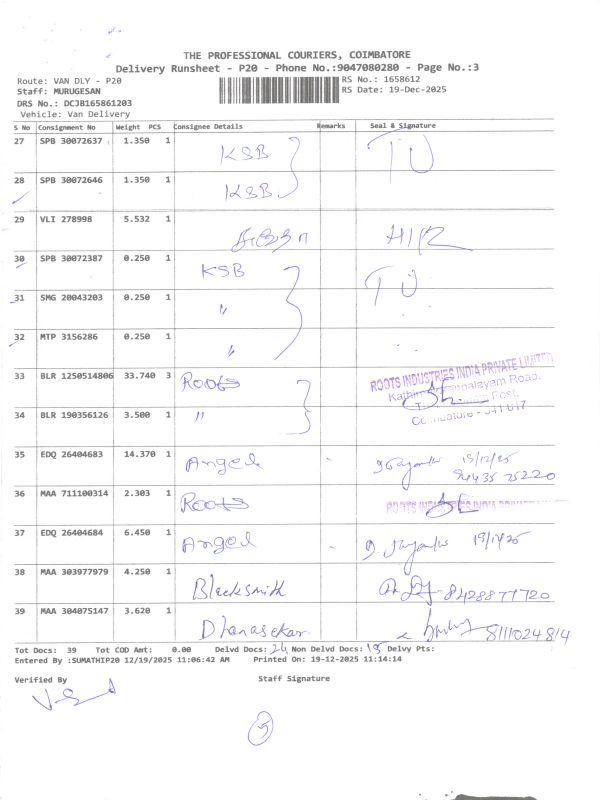 THE PROFESSIONAL COURIERS, COIMBATORE
Delivery Runsheet - P20 - Phone No.:9047080280 - Page No.:3
Route: VAN DLY - P20
RS No.: 1658612
Staff: MURUGESAN
RS Date: 19-Dec-2025
DRS No.: DCJB165861203
Vehicle: Van Delivery
S No Consignment No Weight PCS Consignee Details Remarks Seal & Signature
27 SPB 30072637 1.350 1 KSB TU
28 SPB 30072646 1.350 1 KSB
29 VLI 278998 5.532 1
30 SPB 30072387 0.250 1 KSB TU
31 SMG 20043203 0.250 1 "
32 MTP 3156286 0.250 1 "
33 BLR 1250514806 33.740 3 Roots
ROOTS INDUSTRIES INDIA PRIVATE LIMITED
Road,
Post,
Coimbatore - 641 017
34 BLR 190356126 3.500 1 "
35 EDQ 26404683 14.370 1 Angel 19/12/25
75220
36 MAA 711100314 2.303 1 Roots ROOTS INDUSTRIES INDIA PRIVATE
37 EDQ 26404684 6.450 1 Angel 19/12/25
38 MAA 303977979 4.250 1 Blacksmith 8428877720
39 MAA 304075147 3.620 1 Dhanasekar 8111024814
Tot Docs: 39 Tot COD Amt: 0.00 Delvd Docs: Non Delvd Docs: Delvy Pts:
Entered By :SUMATHIP20 12/19/2025 11:06:42 AM Printed On: 19-12-2025 11:14:14
Verified By Staff Signature
3